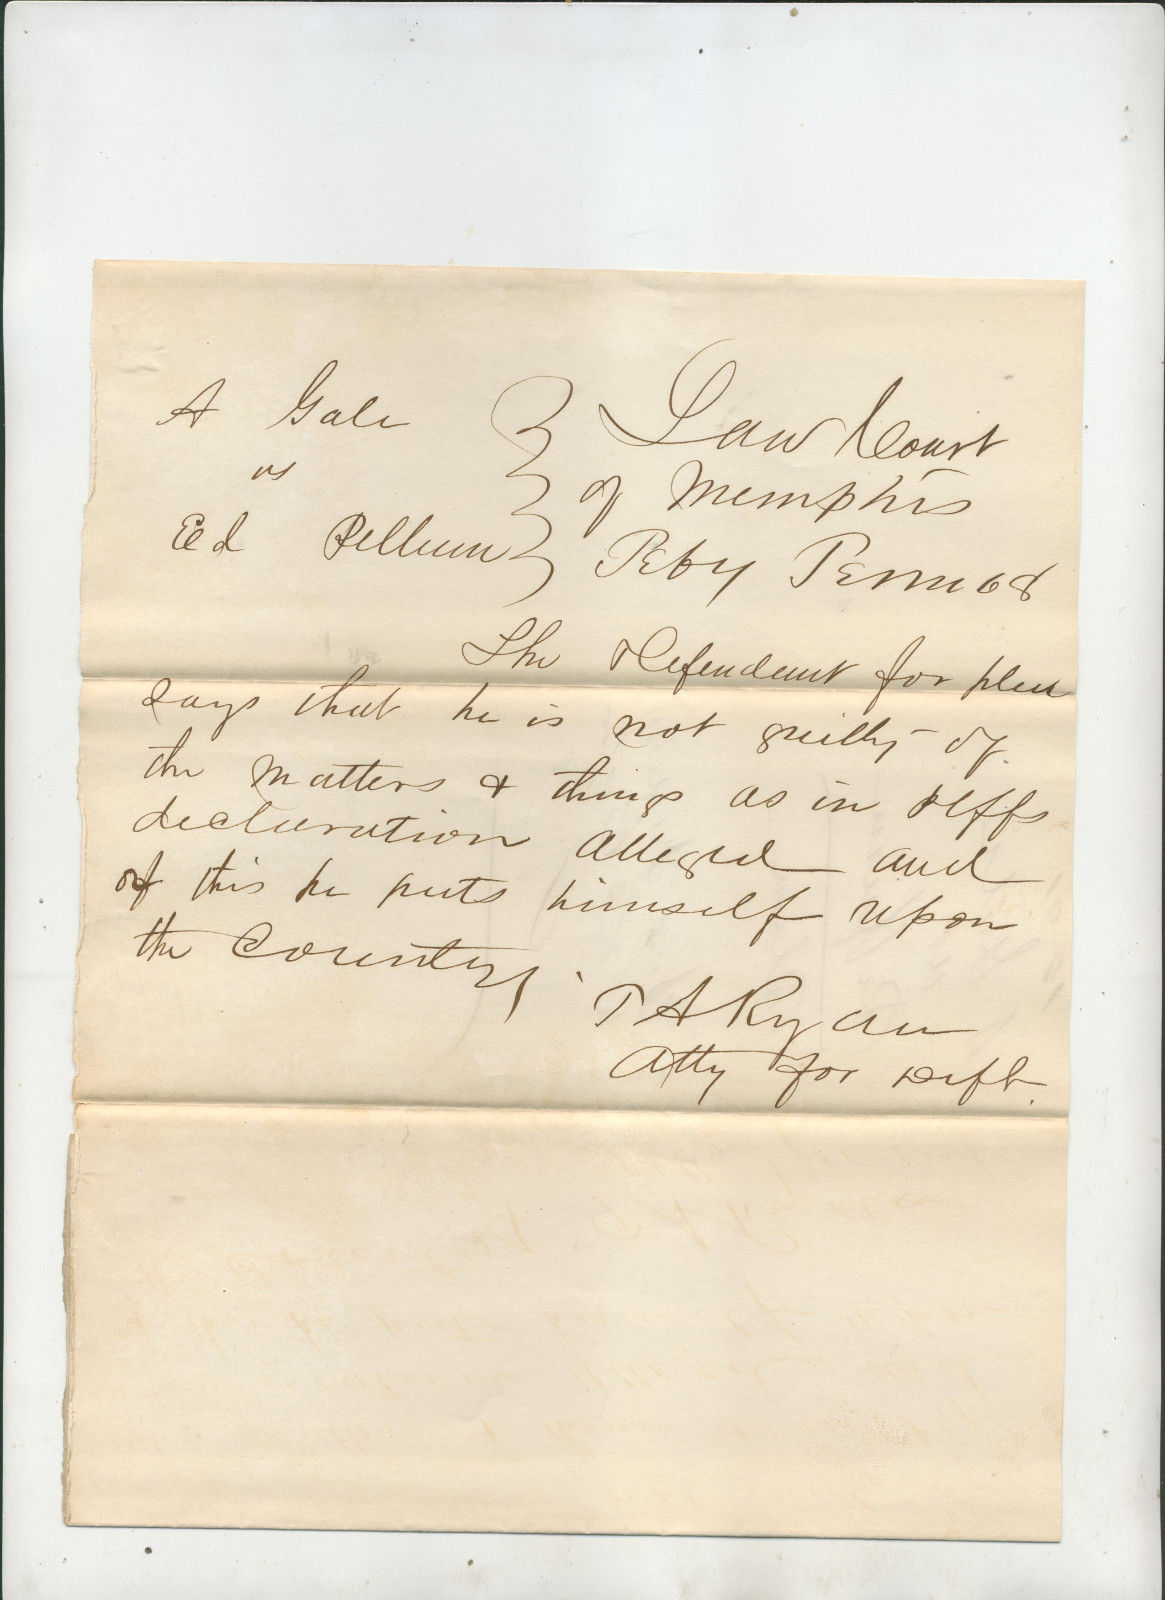 A Gale } Law Court
vs } of Memphis
Ed Pellum } Feby Term 68
The Defendant for plea
says that he is not guilty of
the matters & things as in Plffs
declaration alleged and
of this he puts himself upon
the Country,
T A Ryan
Atty for Deft.